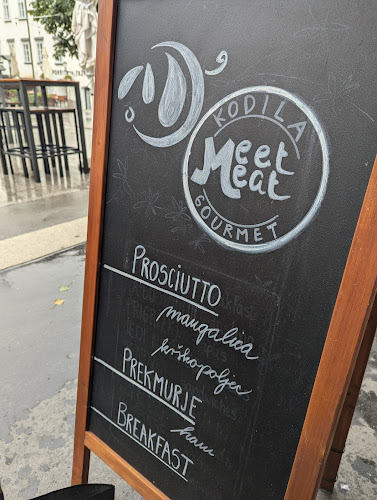 KODILA
Meet
Meat
GOURMET
PROSCIUTTO
mangalica
krškopoljec
PREKMURJE
ham
BREAKFAST